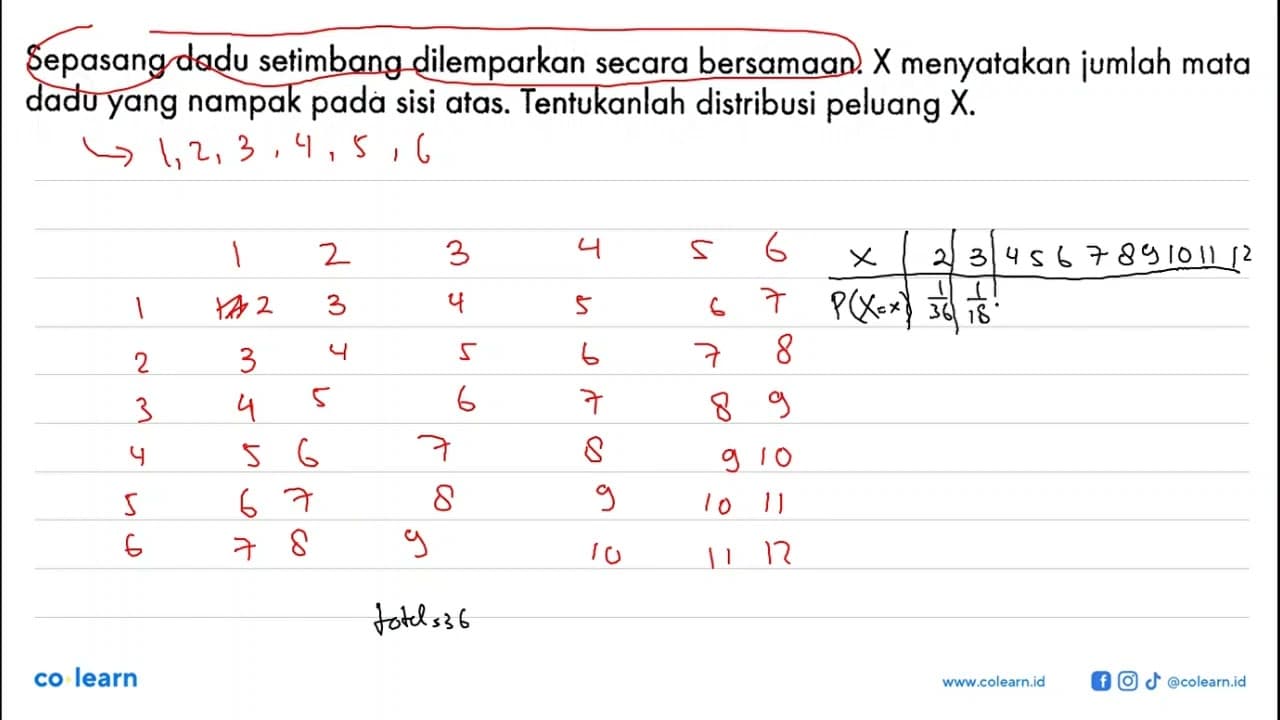 Sepasang dadu setimbang dilemparkan secara bersamaan. X menyatakan jumlah mata
dadu yang nampak pada sisi atas. Tentukanlah distribusi peluang X.
1, 2, 3, 4, 5, 6
1 2 3 4 5 6
1 2 3 4 5 6 7
2 3 4 5 6 7 8
3 4 5 6 7 8 9
4 5 6 7 8 9 10
5 6 7 8 9 10 11
6 7 8 9 10 11 12
X 2 3 4 5 6 7 8 9 10 11 12
P(X=x) 1/36 1/18
total = 36
co learn
www.colearn.id
@colearn.id